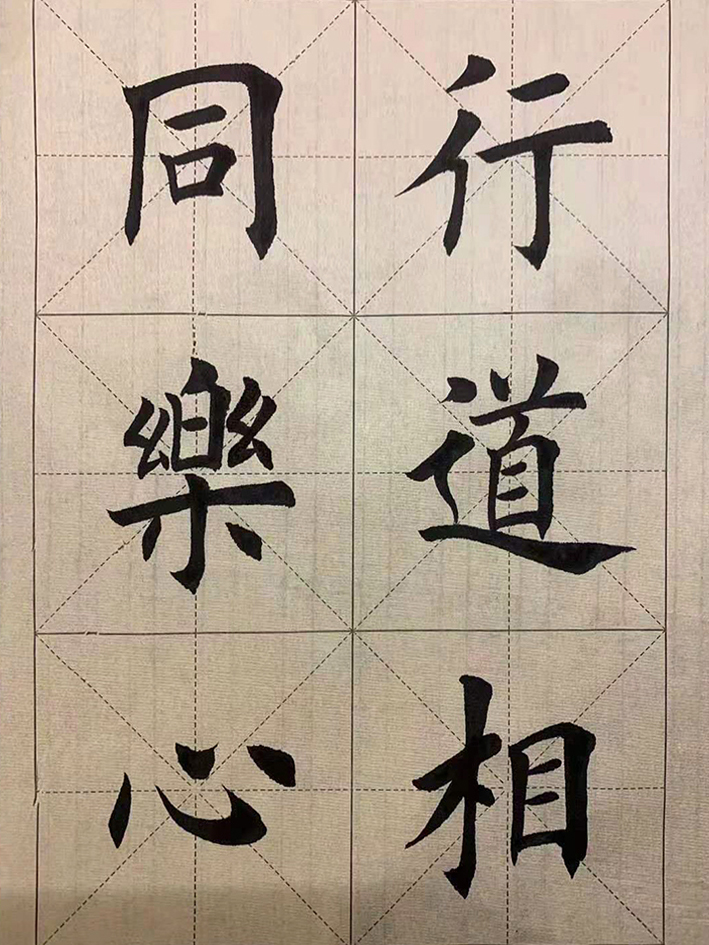 行道相
同樂心